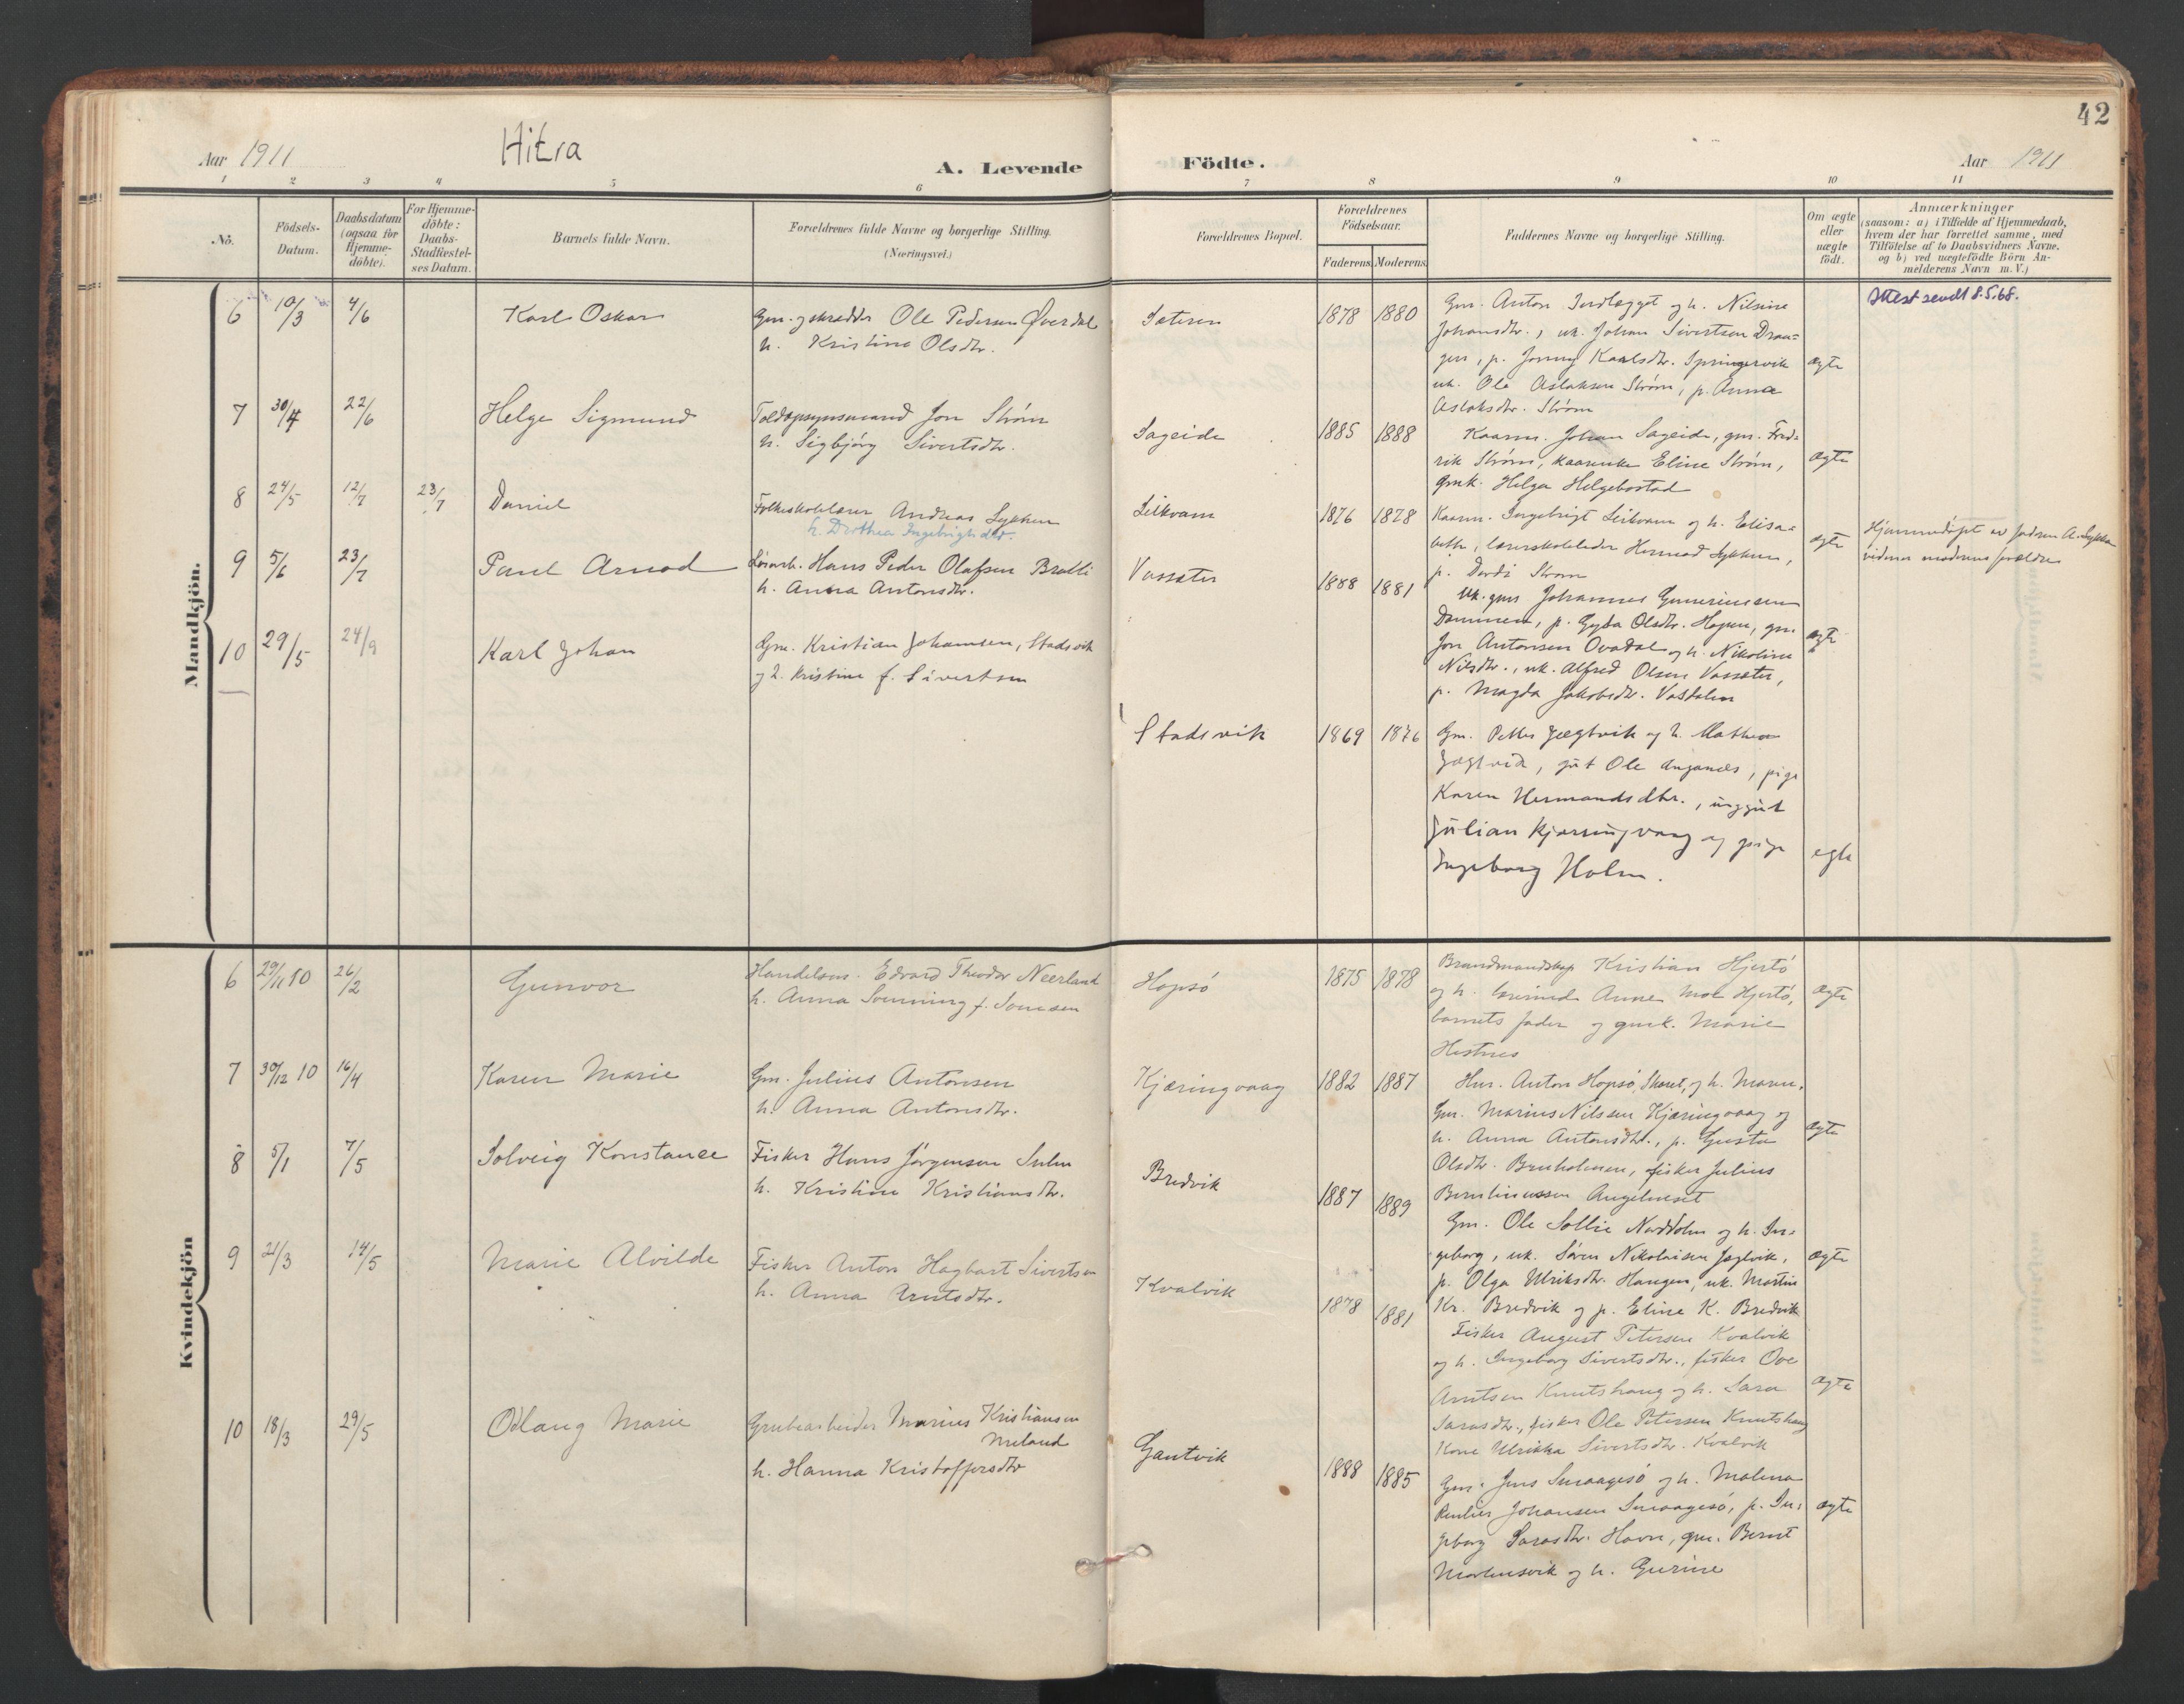 42
Aar 1911
Hitra
A. Levende
Födte.
Aar 1911
1 2 3 4 5 6 7 8 9 10 11
No.
Födsels-
Datum.
Daabsdatum
(ogsaa for
Hjemme-
döbte).
For Hjemme-
döbte:
Daabs-
Stadfæstel-
ses Datum.
Barnets fulde Navn.
Forældrenes fulde Navne og borgerlige Stilling.
(Næringsvei.)
Forældrenes Bopæl.
Forældrenes
Födselsaar.
Faderens Moderens
Faddernes Navne og borgerlige Stilling.
Om ægte
eller
uægte
födt.
Anmærkninger
(saasom: a) i Tilfælde af Hjemmedaab,
hvem der har forrettet samme, med
Tilföielse af to Daabsvidners Navne.
og b) ved uægtefödte Börn An-
melderens Navn m. V.)
Mandkjön.
6 10/3 4/6 Karl Oskar
Gm. og skrædder Ole Pedersen Øverdal
h. Kristine Olsdtr.
Sæteren
1878 1880
Gm. Anton Indlægget og h. Nilsine
Johansdtr., uk. Johan Sivertsen Draa=
gen, p. Jenny Karlsdtr. Springervik
uk. Ole Aslaksen Strøm, p. Anna
Aslaksdtr. Strøm
ægte
Attest sendt 8.5.68.
7 30/4 22/6 Helge Sigmund
Toldopsynsmand Jon Strøm
h. Sigbjørg Sivertsdtr.
Sageide
1885 1888
Kaarm. Johan Sageide, gm. Fred=
rik Strøm, kaarenke Eline Strøm,
Gmk. Helga Helgebostad
ægte
8 24/5 12/7 23/7 Daniel
Folkeskolelærer Andreas Lykken
h. Drothea Ingebrigtsdtr.
Leikvam
1876 1878
Kaarm. Ingebrigt Leikvam og h. Elisa=
beth, lærerskoleleder Hermod Lykken,
p. Dordi Strøm
ægte
Hjemmedøpt av faderen A. Lykken
vidner moderens forældre
9 5/6 23/7 Paul Arnod
Løsarb. Hans Peder Olafsen Bratli
h. Anna Antonsdtr.
Vassæter
1888 1881
Uk. gms Johannes Gunerinssen
Dammen, p. Gyda Olsdtr. Hopen, gm.
Jon Antonsen Ovedal og h. Nikoline
Nilsdtr., uk. Alfred Olsen Vassæter,
p. Magda Jakobsdtr. Vasdalen
ægte
10 29/5 24/9 Karl Johan
Gm. Kristian Johansen, Stadsvik
og h. Kristine f. Sivertsen
Stadsvik
1869 1876
Gm. Petter Jægtvik og h. Mathea
Jægtvik, gut Ole Anganes, pige
Karen Hermandsdtr., unggut
Julian Kjærringvaag og pige
Ingeborg Holm.
egte
Kvindekjön
6 29/11 10 26/2 Gunvor
Handelsm. Edvard Theodor Neerland
h. Anna Sommning f. Somsen
Hopsø
1875 1878
Brandmandskap Kristian Hjertø
og h. Anne Moe Hjertø,
barnets fader og gmk. Marie
Hestnes
ægte
7 30/12 10 16/4 Karen Marie
Gm. Julius Antonsen
h. Anna Antonsdtr.
Kjæringvaag
1882 1887
Hm. Anton Hopsø, Skaret, og h. Maren,
Gm. Marius Nilssen Kjæringvaag og
h. Anna Antonsdtr., p. Gusta
Olsdtr. Bruholmen, fisker Julius
Berntinussen Angelneset
ægte
8 5/1 7/5 Solveig Konstance
Fisker Hans Jørgensen Sulen
h. Kristine Kristiansdtr.
Bredvik
1887 1889
Gm. Ole Sollie Nordbolm og h. In=
geborg, uk. Søren Nikolaisen Jægtvik,
p. Olga Ulriksdtr. Haugen, uk. Martin
Kr. Bredvik og p. Eline K. Bredvik
ægte
9 21/3 14/5 Marie Alvilde
Fisker Anton Hagbart Sivertsen
h. Anna Arntsdtr.
Kvalvik
1878 1881
Fisker August Petersen Kvalvik
og h. Ingeborg Sivertsdtr., fisker Ove
Arntsen Knutshaug og h. Sara
Larasdtr., fisker Ole Petersen Knutshaug
Kone Ulrikka Sivertsdtr. Kvalvik
ægte
10 18/3 29/5 Odlaug Marie
Grubearbeider Marius Kristiansen
Meland
h. Hanna Kristoffersdtr
Gautvik
1888 1885
Gm. Jens Smaagesø og h. Malena
Johansen Smaagesø, p. In=
geborg Larasdtr. Havn, gm. Bernt
Martinsvik og h. Gurine
ægte